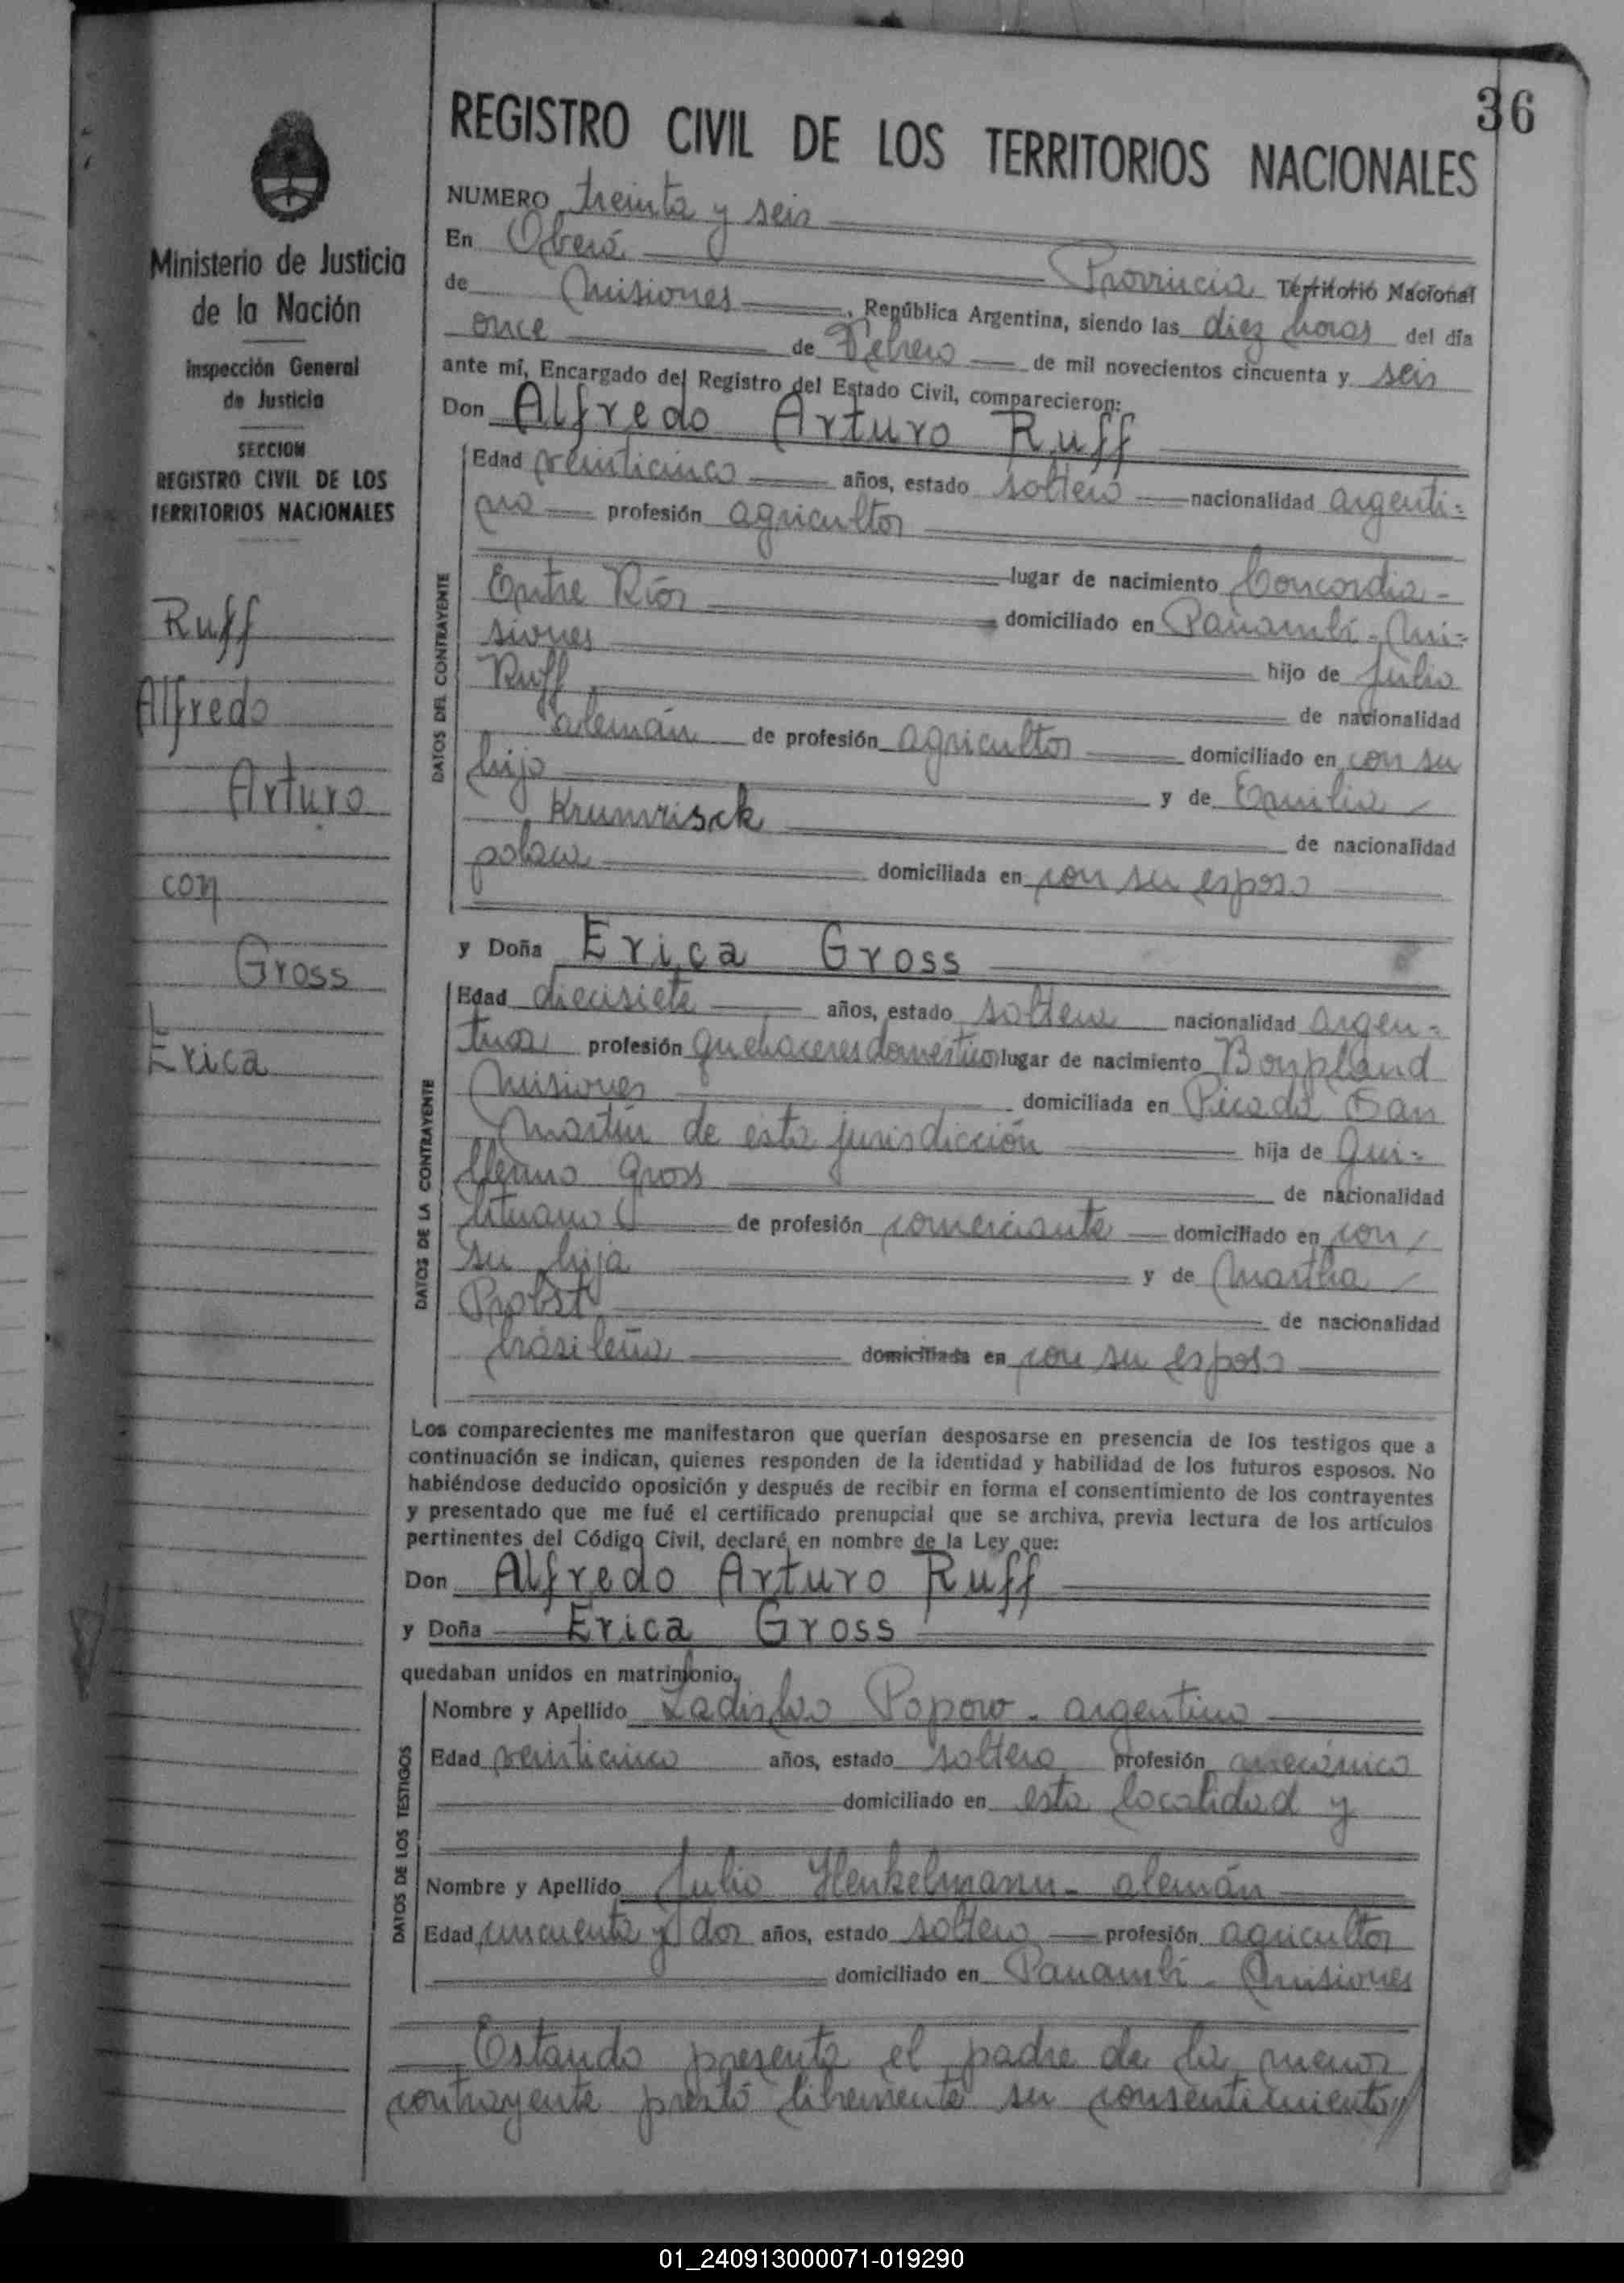 36
REGISTRO CIVIL DE LOS TERRITORIOS NACIONALES
Ministerio de Justicia
de la Nación
Inspección General
de Justicia
SECCION
REGISTRO CIVIL DE LOS
TERRITORIOS NACIONALES
Ruff
Alfredo
Arturo
con
Gross
Erica
NUMERO treinta y seis
En Oberá Provincia Territorio Nacional
de Misiones, República Argentina, siendo las diez horas del día
once de Febrero de mil novecientos cincuenta y seis
ante mí, Encargado del Registro del Estado Civil, comparecieron:
Don Alfredo Arturo Ruff
DATOS DEL CONTRAYENTE
Edad veinticinco años, estado soltero nacionalidad argenti-
no profesión agricultor
lugar de nacimiento Concordia-
Entre Ríos domiciliado en Panambí-Mi-
siones hijo de Julio
Ruff de nacionalidad
alemán de profesión agricultor domiciliado en con su
hijo y de Emilia
Krumrisck de nacionalidad
polaca domiciliada en con su esposo
y Doña Erica Gross
DATOS DE LA CONTRAYENTE
Edad diecisiete años, estado soltera nacionalidad argen-
tina profesión quehaceres domésticos lugar de nacimiento Bonpland
Misiones domiciliada en Picada San
Martín de esta jurisdicción hija de Gui-
llermo Gross de nacionalidad
lituano de profesión comerciante domiciliado en con
su hija y de Martha
Probst de nacionalidad
brasileña domiciliada en con su esposo
Los comparecientes me manifestaron que querían desposarse en presencia de los testigos que a
continuación se indican, quienes responden de la identidad y habilidad de los futuros esposos. No
habiéndose deducido oposición y después de recibir en forma el consentimiento de los contrayentes
y presentado que me fué el certificado prenupcial que se archiva, previa lectura de los artículos
pertinentes del Código Civil, declaré en nombre de la Ley que:
Don Alfredo Arturo Ruff
y Doña Erica Gross
quedaban unidos en matrimonio,
DATOS DE LOS TESTIGOS
Nombre y Apellido Ladislao Popow - argentino
Edad veinticinco años, estado soltero profesión mecánico
domiciliado en esta localidad y
Nombre y Apellido Julio Henkelmann - alemán
Edad cincuenta y dos años, estado soltero profesión agricultor
domiciliado en Panambí - Misiones
Estando presente el padre de la menor
contrayente prestó libremente su consentimiento//
01_240913000071-019290